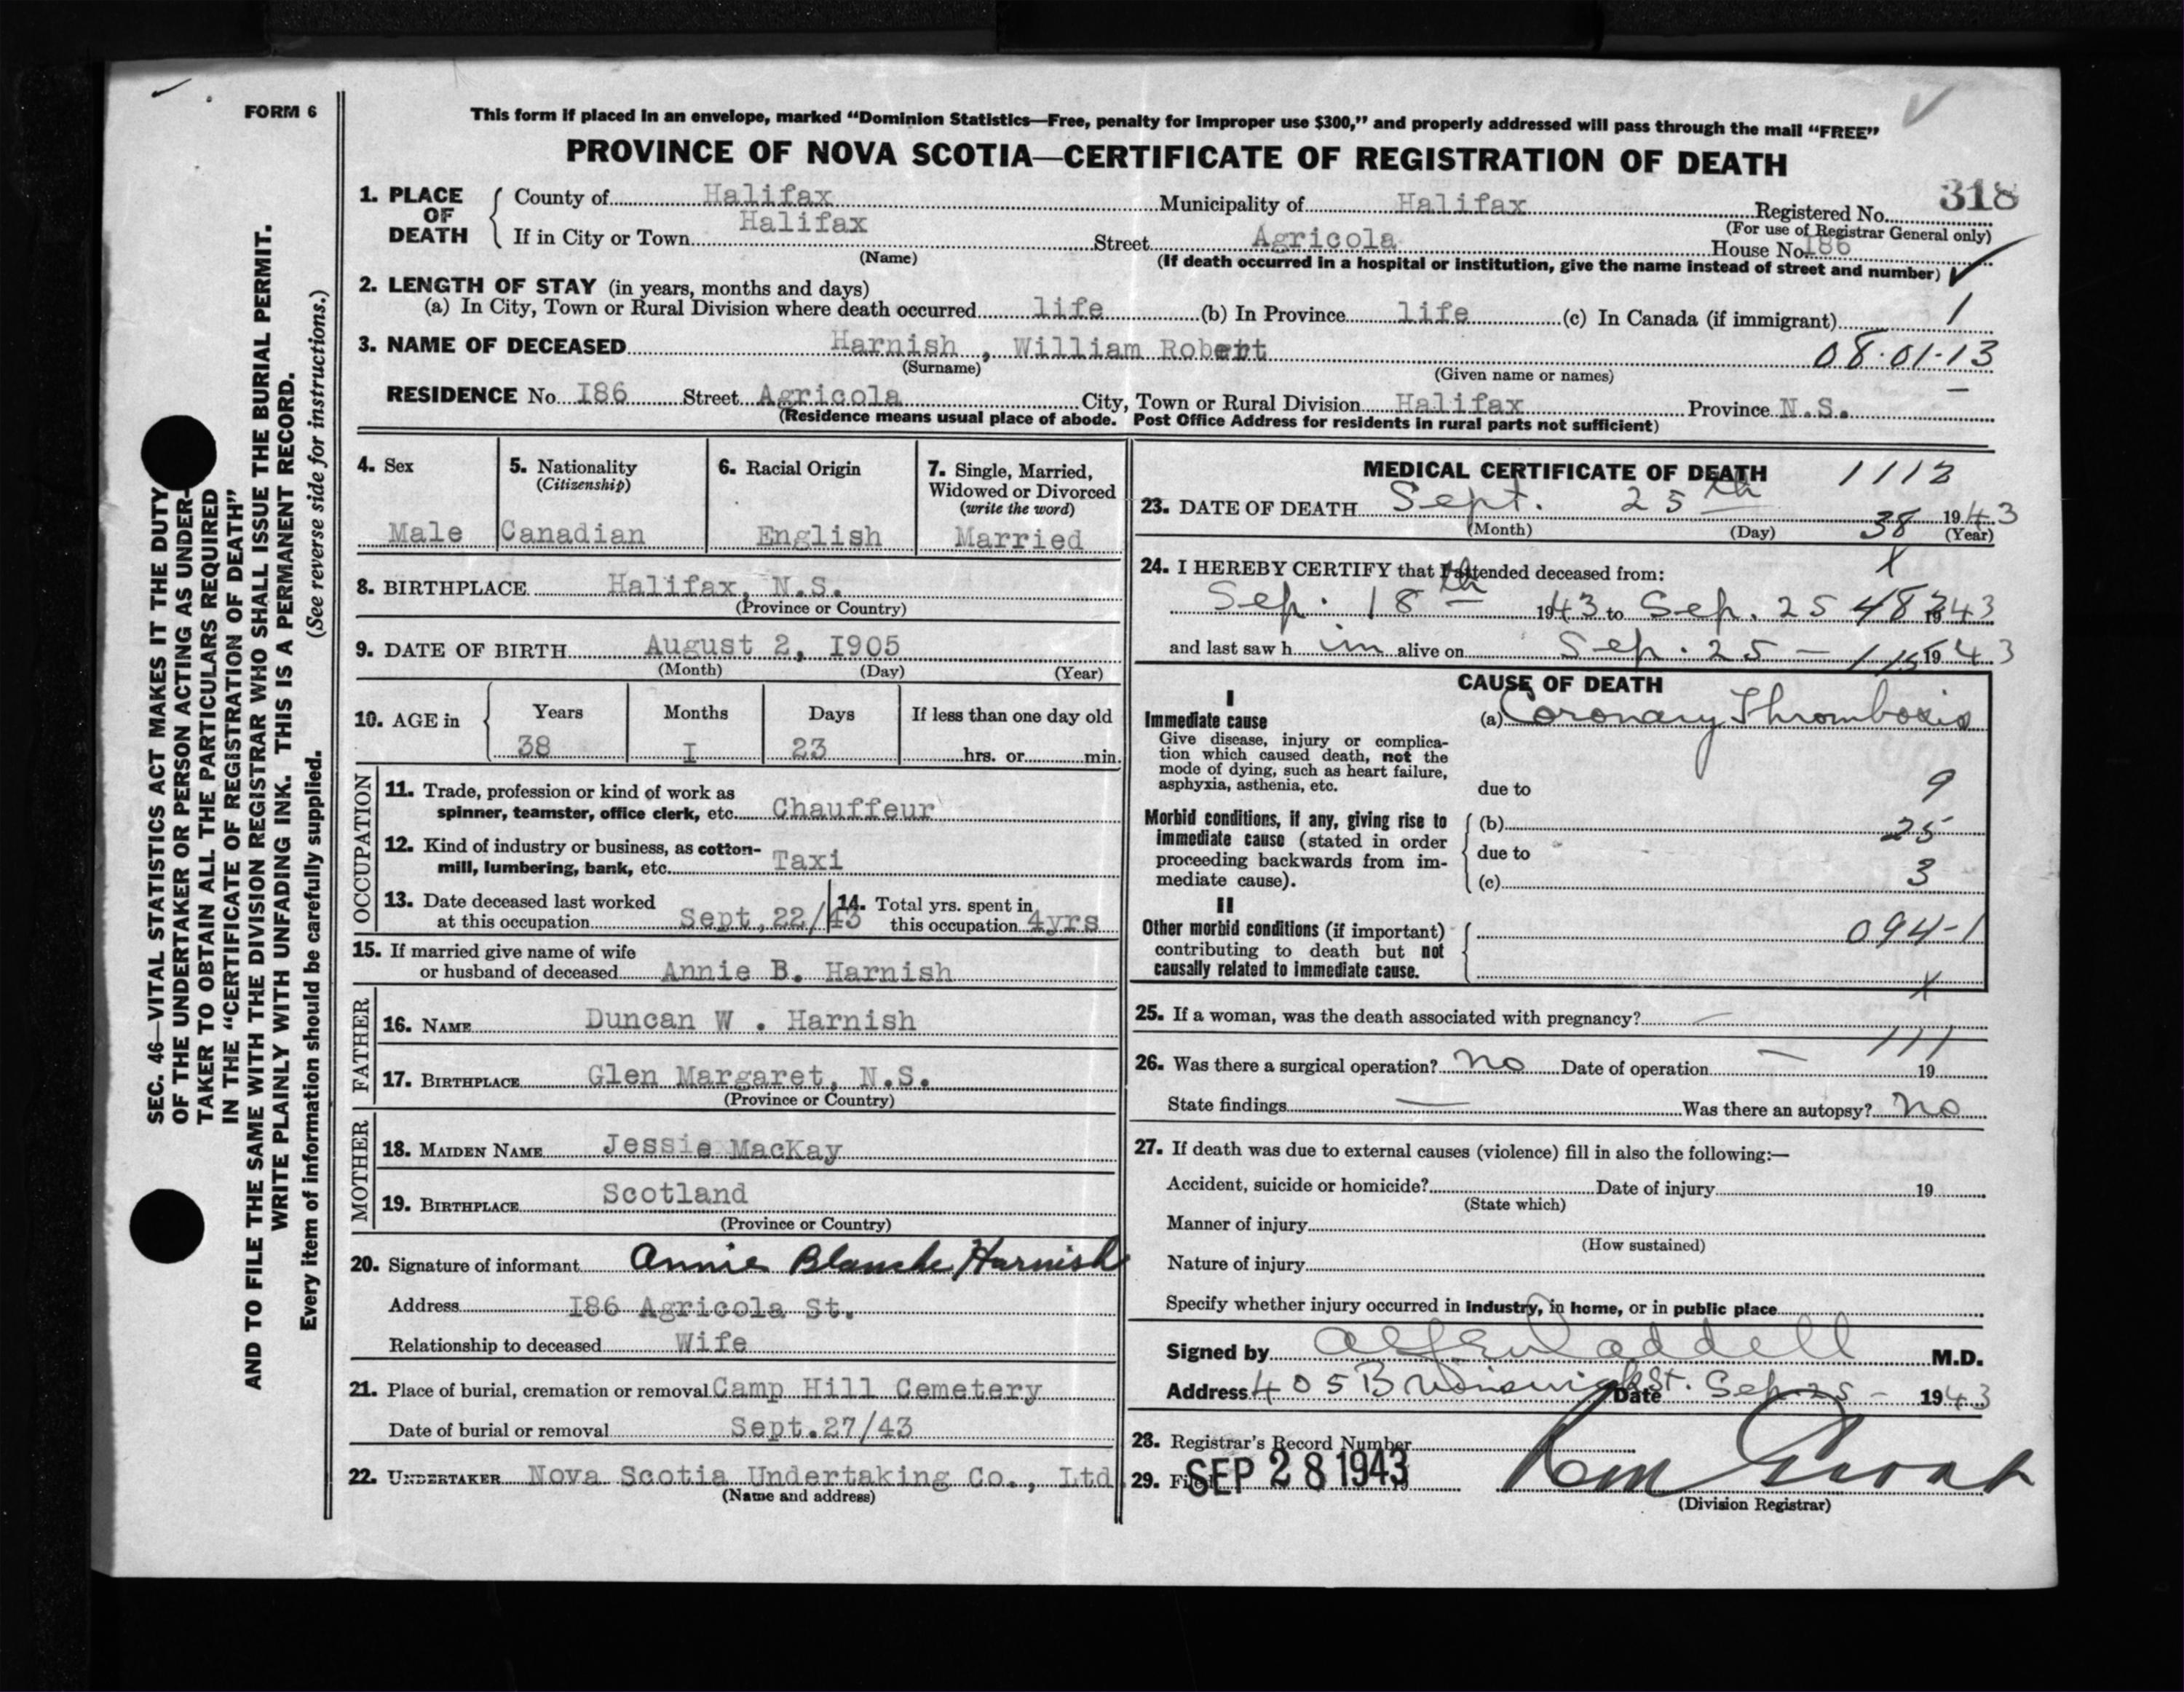 FORM 6
SEC. 46—VITAL STATISTICS ACT MAKES IT THE DUTY
OF THE UNDERTAKER OR PERSON ACTING AS UNDER-
TAKER TO OBTAIN ALL THE PARTICULARS REQUIRED
IN THE "CERTIFICATE OF REGISTRATION OF DEATH"
AND TO FILE THE SAME WITH THE DIVISION REGISTRAR WHO SHALL ISSUE THE BURIAL PERMIT.
WRITE PLAINLY WITH UNFADING INK. THIS IS A PERMANENT RECORD.
Every item of information should be carefully supplied. (See reverse side for instructions.)
This form if placed in an envelope, marked "Dominion Statistics—Free, penalty for improper use $300," and properly addressed will pass through the mail "FREE"
PROVINCE OF NOVA SCOTIA—CERTIFICATE OF REGISTRATION OF DEATH
1. PLACE OF DEATH County of Halifax Municipality of Halifax Registered No. 318
(For use of Registrar General only)
If in City or Town Halifax Street Agricola House No. 186
(Name) (If death occurred in a hospital or institution, give the name instead of street and number)
2. LENGTH OF STAY (in years, months and days)
(a) In City, Town or Rural Division where death occurred life (b) In Province life (c) In Canada (if immigrant) 1
3. NAME OF DECEASED Harnish , William Robert 08·01-13
(Surname) (Given name or names)
RESIDENCE No. I86 Street Agricola City, Town or Rural Division Halifax Province N.S.
(Residence means usual place of abode. Post Office Address for residents in rural parts not sufficient)
4. Sex Male
5. Nationality (Citizenship) Canadian
6. Racial Origin English
7. Single, Married, Widowed or Divorced (write the word) Married
8. BIRTHPLACE Halifax, N.S.
(Province or Country)
9. DATE OF BIRTH August 2, I905
(Month) (Day) (Year)
10. AGE in Years Months Days If less than one day old
38 I 23 hrs. or min.
OCCUPATION
11. Trade, profession or kind of work as
spinner, teamster, office clerk, etc. Chauffeur
12. Kind of industry or business, as cotton-
mill, lumbering, bank, etc. Taxi
13. Date deceased last worked
at this occupation Sept.22/43
14. Total yrs. spent in
this occupation 4yrs
15. If married give name of wife
or husband of deceased Annie B. Harnish
FATHER
16. NAME Duncan W . Harnish
17. BIRTHPLACE Glen Margaret, N.S.
(Province or Country)
MOTHER
18. MAIDEN NAME Jessie MacKay
19. BIRTHPLACE Scotland
(Province or Country)
20. Signature of informant Annie Blanche Harnish
Address I86 Agricola St.
Relationship to deceased Wife
21. Place of burial, cremation or removal Camp Hill Cemetery
Date of burial or removal Sept.27/43
22. UNDERTAKER Nova Scotia Undertaking Co., Ltd
(Name and address)
MEDICAL CERTIFICATE OF DEATH 1112
23. DATE OF DEATH Sept. 25th 38 1943
(Month) (Day) (Year)
24. I HEREBY CERTIFY that I attended deceased from:
Sep. 18th 1943 to Sep. 25 1943
and last saw him alive on Sep. 25 — 1943
CAUSE OF DEATH
I
Immediate cause (a) Coronary Thrombosis
Give disease, injury or complica-
tion which caused death, not the
mode of dying, such as heart failure,
asphyxia, asthenia, etc. due to 9
Morbid conditions, if any, giving rise to
immediate cause (stated in order
proceeding backwards from im-
mediate cause).
(b) 25
due to
(c) 3
II
Other morbid conditions (if important)
contributing to death but not
causally related to immediate cause.
094-1
X
25. If a woman, was the death associated with pregnancy? —
111
26. Was there a surgical operation? no Date of operation — 19
State findings — Was there an autopsy? no
27. If death was due to external causes (violence) fill in also the following:—
Accident, suicide or homicide? Date of injury 19
(State which)
Manner of injury
(How sustained)
Nature of injury
Specify whether injury occurred in industry, in home, or in public place
Signed by Waddell M.D.
Address 405 Brunswick St. Date Sep. 25 — 1943
28. Registrar's Record Number
29. Filed SEP 28 1943
(Division Registrar)